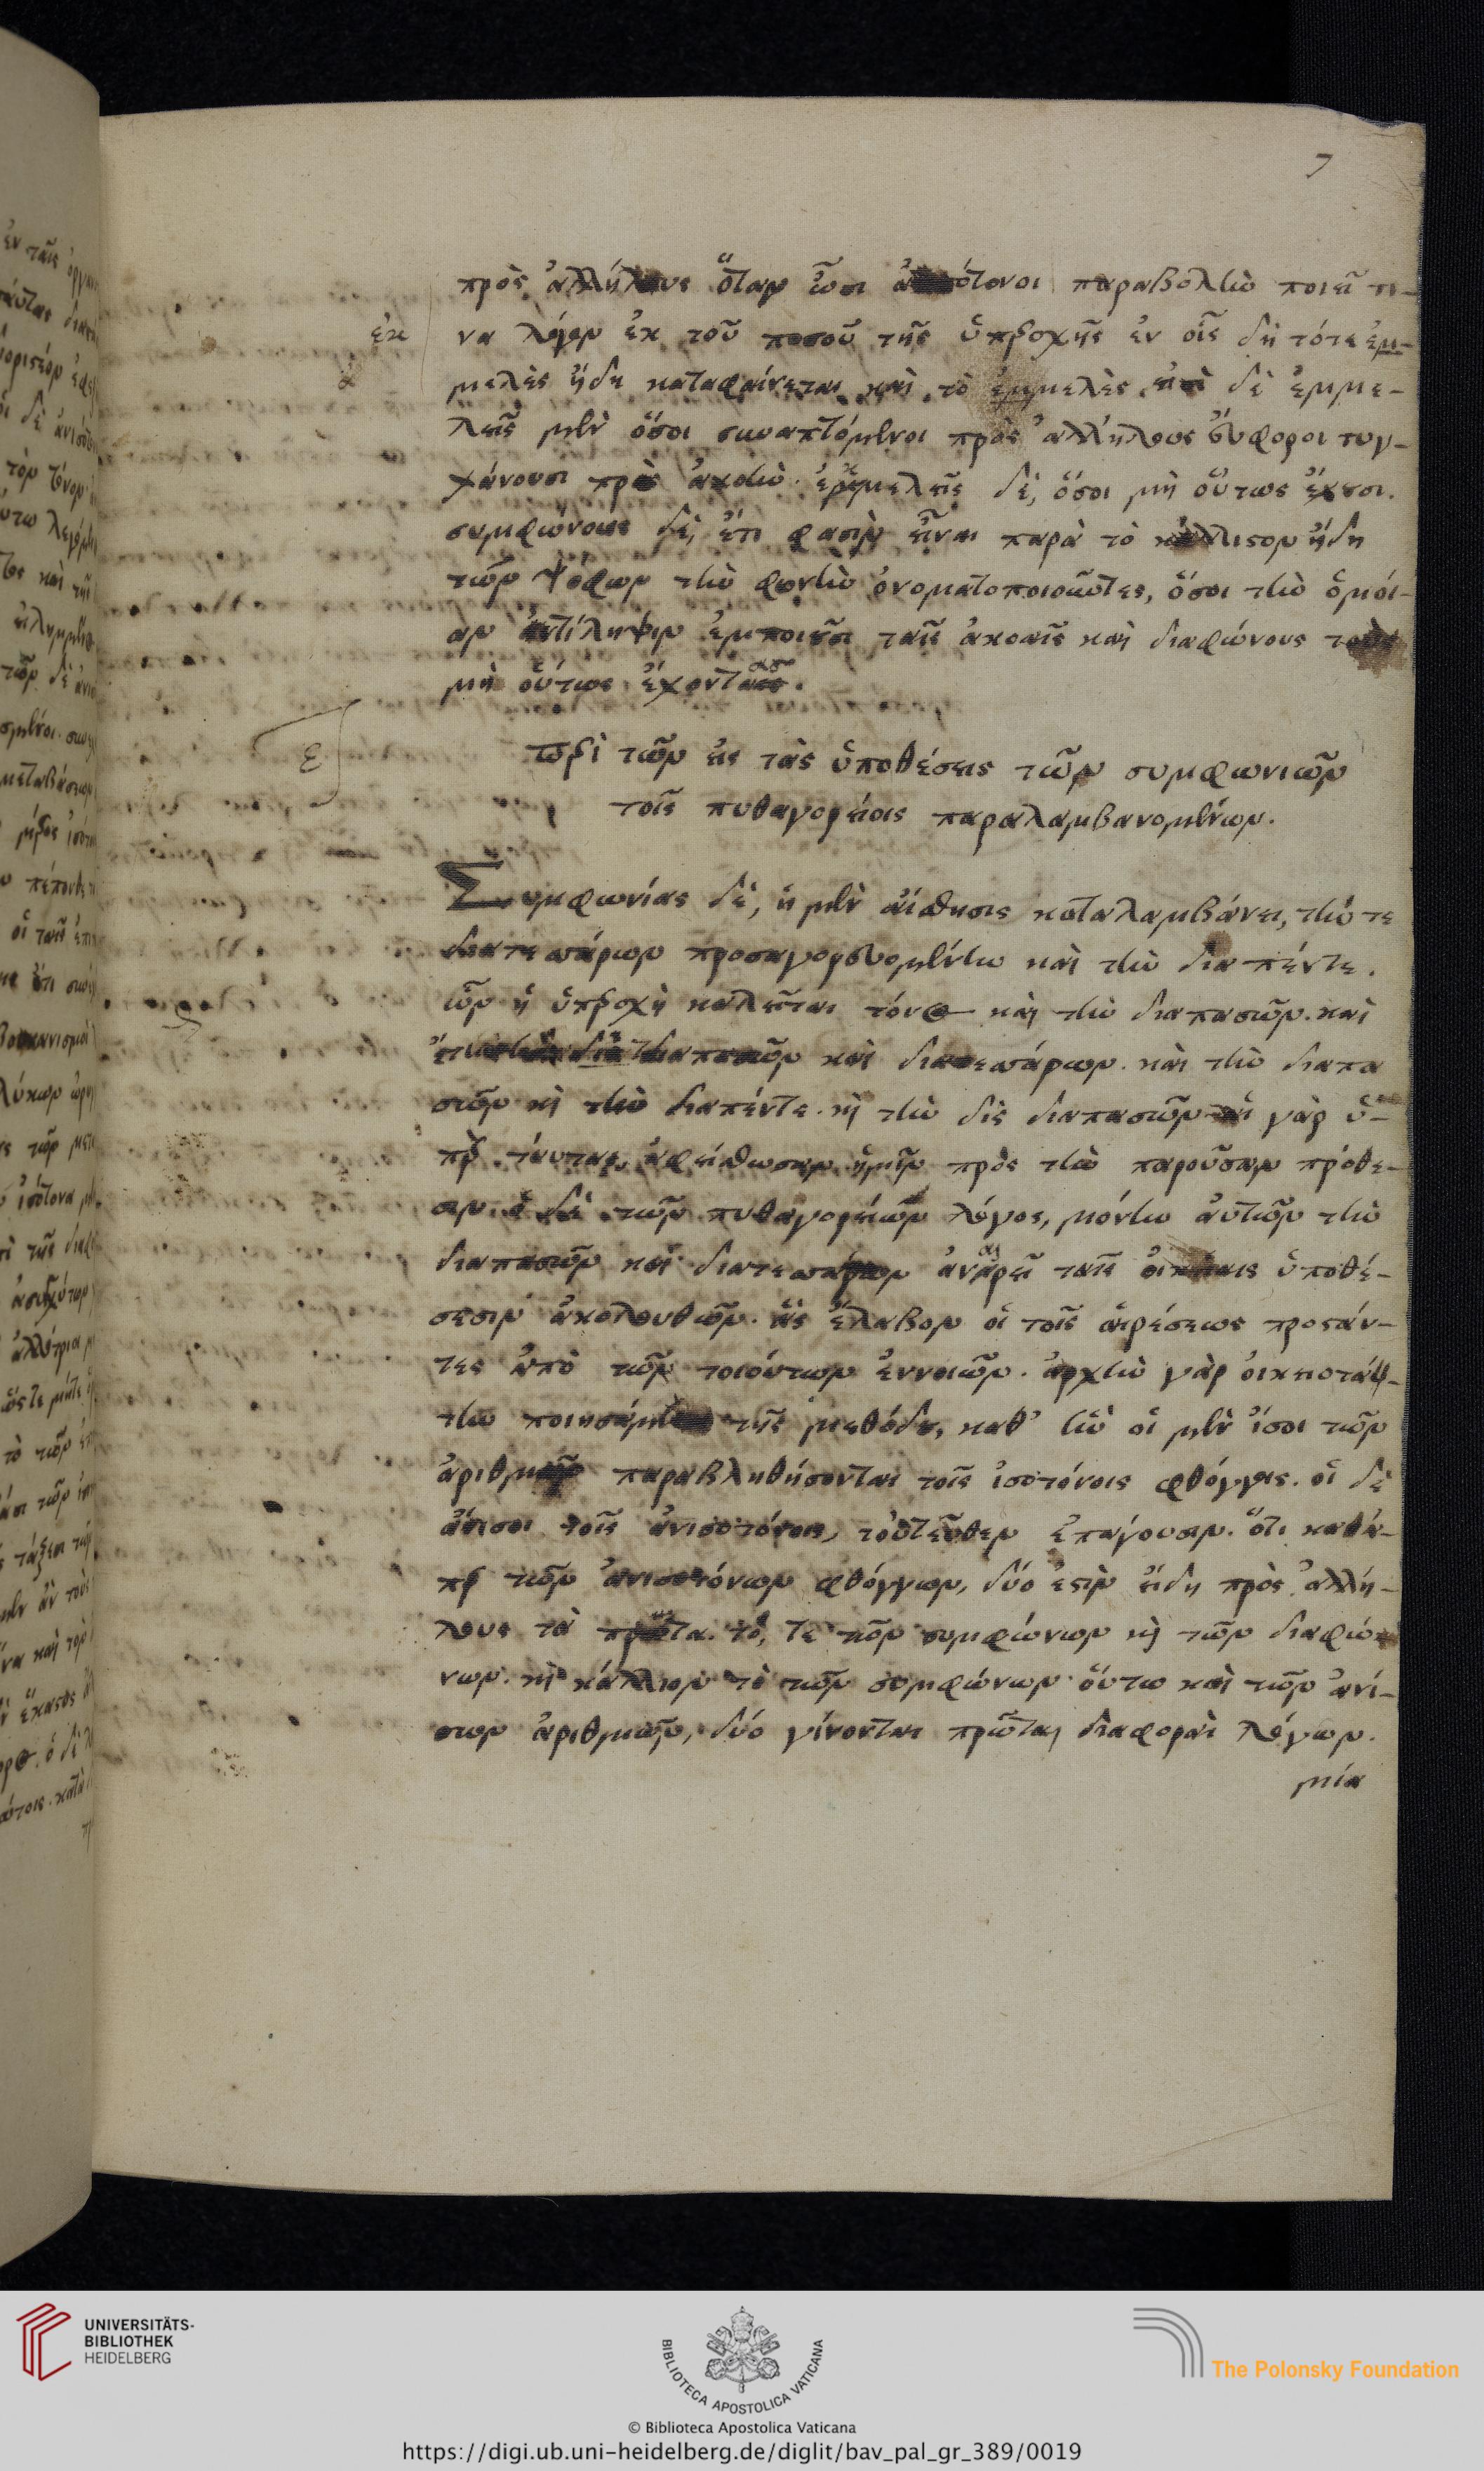 7
πρὸς ἀλλήλους ὅταν ὦσι ἀνισότονοι παραβολὴν ποιεῖ τι-
ἐκ
να λόγον ἐκ τοῦ ποσοῦ τῆς ὑπεροχῆς ἐν οἷς δὴ τότε ἐμ-
μελὲς ἤδη καταφαίνεται καὶ τὸ ἐμμελὲς δὲ ἐμμε-
λεῖς μὲν ὅσοι συναπτόμενοι πρὸς ἀλλήλους εὔφοροι τυγ-
χάνουσι πρὸς ἀκοὴν. ἐκμελεῖς δὲ, ὅσοι μὴ οὕτως ἔχουσι.
συμφώνους δὲ, ἔτι φασὶν εἶναι παρὰ τὸ κάλλιστον ἤδη
τῶν ψόφων τὴν φωνὴν ὀνοματοποιοῦντες, ὅσοι τὴν ὁμοί-
αν ἀντίληψιν ἐμποιοῦσι ταῖς ἀκοαῖς καὶ διαφώνους τοὺς
μὴ οὕτως ἔχοντας.
ε
περὶ τῶν εἰς τὰς ὑποθέσεις τῶν συμφωνιῶν
τοῖς πυθαγορείοις παραλαμβανομένων.
Συμφωνίας δὲ, ἡ μὲν αἴσθησις καταλαμβάνει, τήν τε
διατεσσάρων προσαγορευομένην καὶ τὴν διαπέντε.
ὧν ἡ ὑπεροχὴ καλεῖται τόνος καὶ τὴν διαπασῶν. καὶ
ἔτι διαπασῶν καὶ διατεσσάρων. καὶ τὴν διαπα
σῶν καὶ τὴν διαπέντε. καὶ τὴν δὶς διαπασῶν αἱ γὰρ ὑ-
πὲρ ταύτας ἀφείσθωσαν ἡμῖν πρὸς τὴν παροῦσαν πρόθε-
σιν. ὁ δὲ τῶν πυθαγορείων λόγος, μόνην αὐτῶν τὴν
διαπασῶν καὶ διατεσσάρων ἀναιρεῖ ταῖς οἰκείαις ὑποθέ-
σεσιν ἀκολουθῶν. ἃς ἔλαβον οἱ τοῖς αἱρέσεως προστάν-
τες ἀπὸ τῶν τοιούτων ἐννοιῶν. ἀρχὴν γὰρ οἰκειοτάτ-
την ποιησάμενοι τῆς μεθόδου, καθ' ἣν οἱ μὲν ἴσοι τῶν
ἀριθμῶν παραβληθήσονται τοῖς ἰσοτόνοις φθόγγοις. οἱ δὲ
ἄνισοι τοῖς ἀνισοτόνοις, τοὐντεῦθεν ἐπάγουσιν. ὅτι καθά-
περ τῶν ἀνισοτόνων φθόγγων, δύο ἐστὶν εἴδη πρὸς ἀλλή-
λους τὰ πρῶτα. τό, τε τῶν συμφώνων καὶ τῶν διαφώ-
νων. καὶ κάλλιον τὸ τῶν συμφώνων οὕτω καὶ τῶν ἀνί-
σων ἀριθμῶν, δύο γίνονται πρῶται διαφοραὶ λόγων.
μία
UNIVERSITÄTS-
BIBLIOTHEK
HEIDELBERG
BIBLIOTECA APOSTOLICA VATICANA
The Polonsky Foundation
© Biblioteca Apostolica Vaticana
https://digi.ub.uni-heidelberg.de/diglit/bav_pal_gr_389/0019